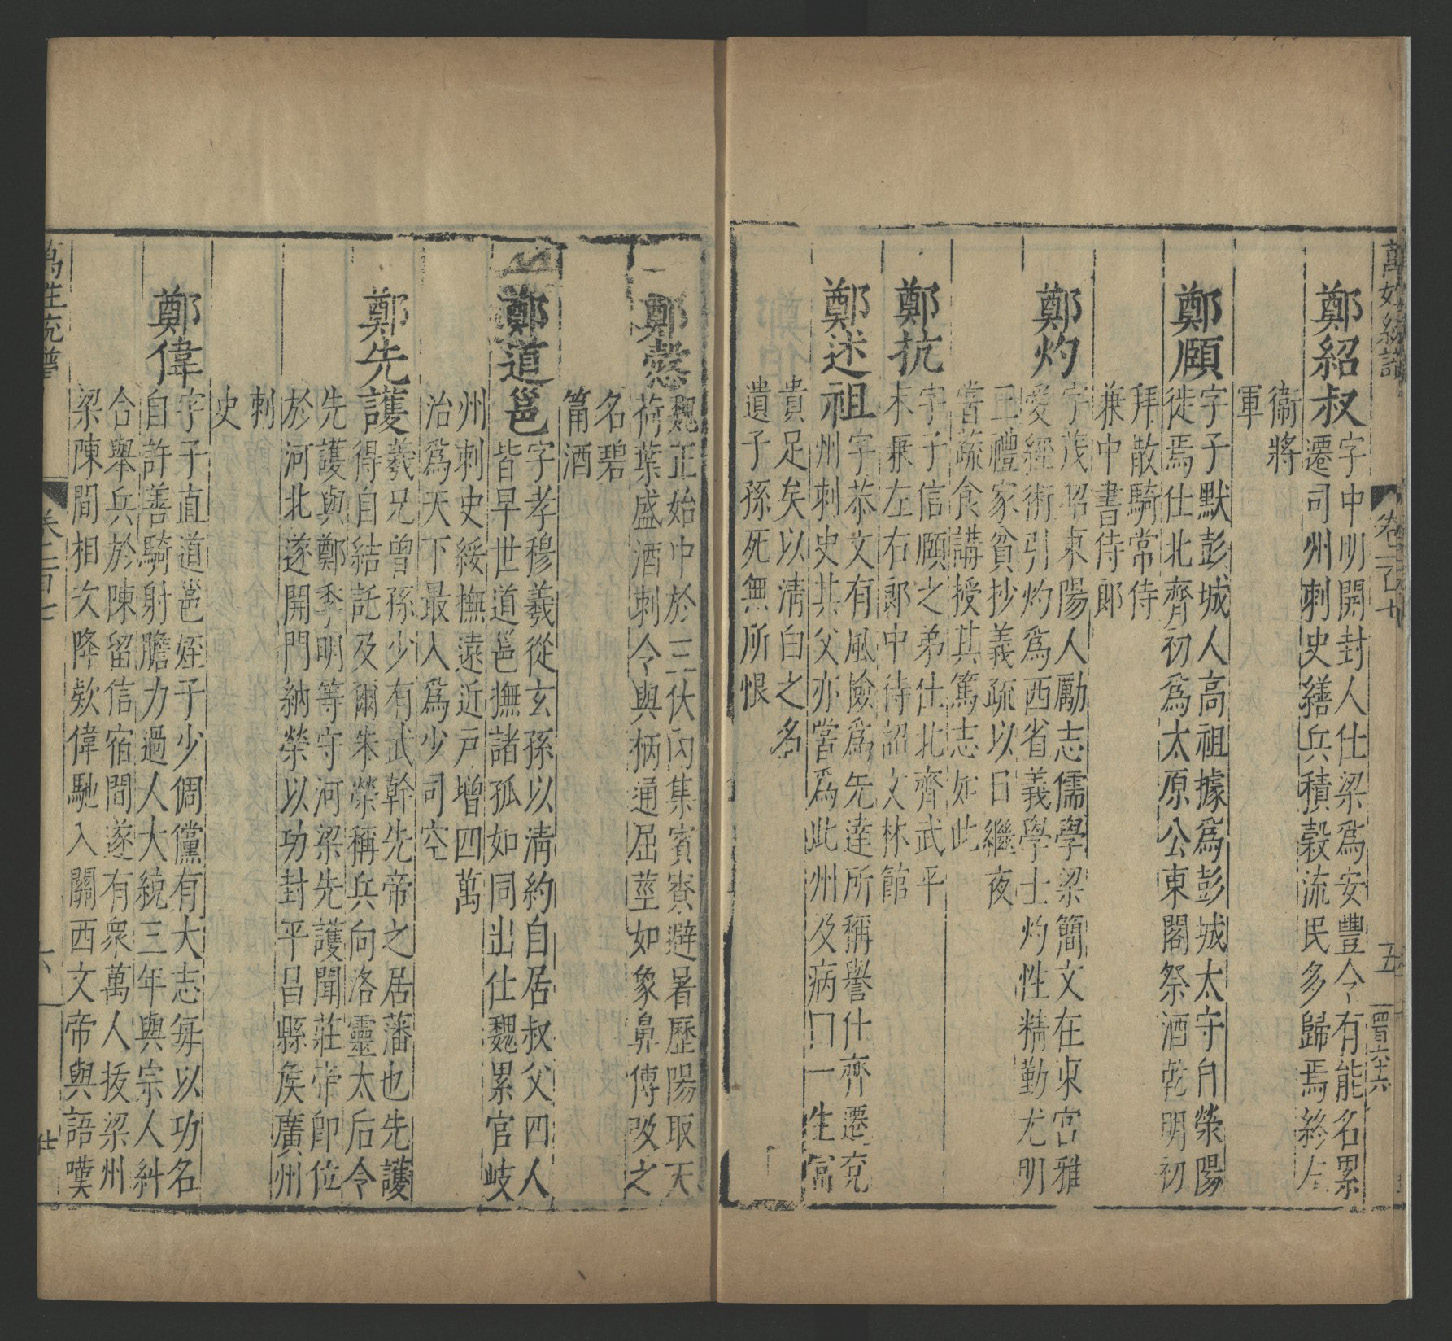 萬姓統譜 卷一百七 五
鄭紹叔 字中明開封人仕梁爲安豐令有能名累
遷司州刺史繕兵積穀流民多歸焉終左
衞將
軍
鄭頤 字子默彭城人高祖據爲彭城太守自滎陽
徙焉仕北齊初爲太原公東閣祭酒乾明初
拜散騎常侍
兼中書侍郎
鄭灼 字茂昭東陽人勵志儒學梁簡文在東宮雅
愛經術引灼爲西省義學士灼性精勤尤明
三禮家貧抄義疏以日繼夜
嘗蔬食講授其篤志如此
鄭抗 字子信頤之弟仕北齊武平
末兼左右郎中待詔文林館
鄭述祖 字恭文有風儉爲先達所稱譽仕齊遷兗
州刺史其父亦嘗爲此州及病曰一生富
貴足矣以淸白之名
遺子孫死無所恨
鄭愨 魏正始中於三伏內集賓寮避暑歷陽取大
荷葉盛酒刺令與柄通屈莖如象鼻傳吸之
名碧
筩酒
鄭道邕 字孝穆羲從玄孫以淸約自居叔父四人
皆早世道邕撫諸孤如同出仕魏累官岐
州刺史綏撫遠近戸增四萬
治爲天下最入爲少司空
鄭先護 羲兄曾孫少有武幹先帝之居藩也先護
得自結託及爾朱榮稱兵向洛靈太后令
先護與鄭季明等守河梁先護聞莊帝卽位
於河北遂開門納榮以功封平昌縣矦廣州
刺
史
鄭偉 字子直道邕姪子少倜儻有大志每以功名
自許善騎射膽力過人大統三年與宗人糾
合舉兵於陳留信宿間遂有衆萬人拔梁州
梁陳間相次降欵偉馳入關西文帝與語嘆
萬姓統譜 卷一百七 六